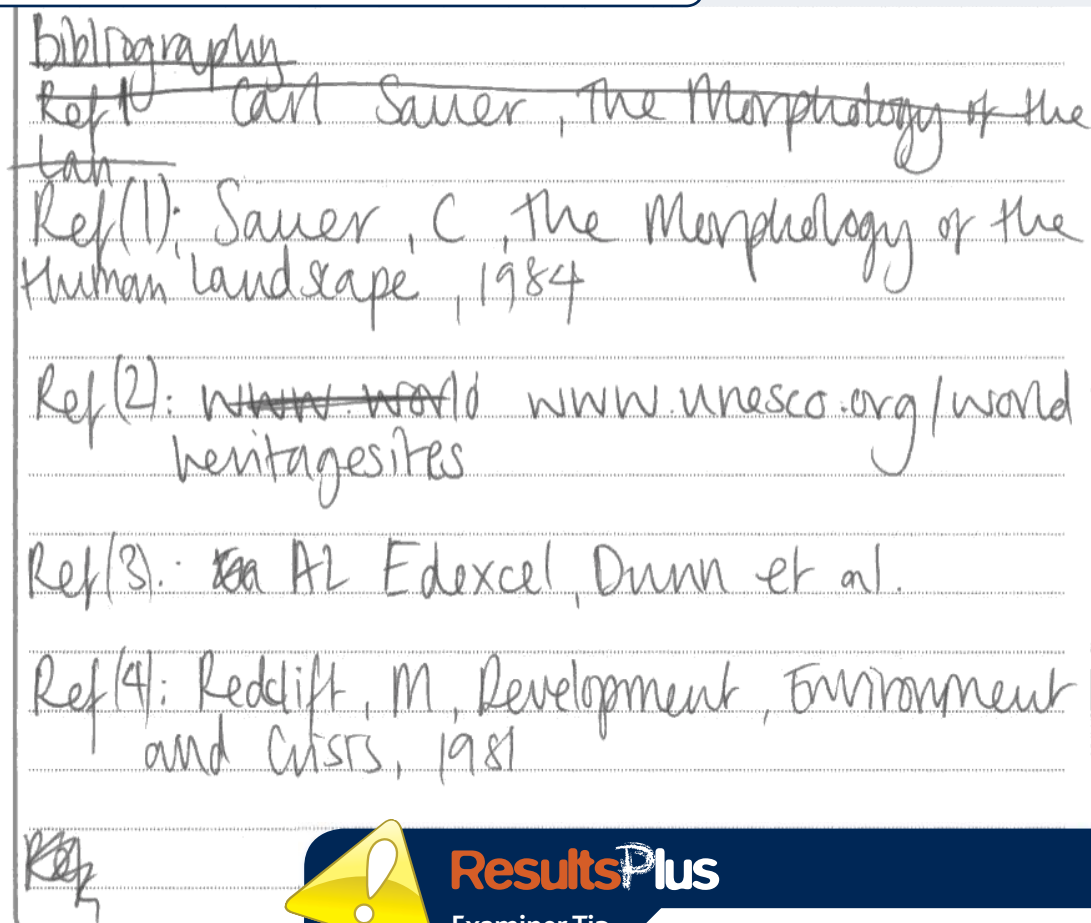 Bibliography
Ref 1 Carl Sauer, The Morphology of the
Lan
Ref(1): Sauer, C, The Morphology of the
Human Landscape, 1984
Ref(2): www.world www.unesco.org/world
heritagesites
Ref(3): A2 Edexcel, Dunn et al.
Ref(4): Redclift, M, Development, Environment
and Crisis, 1981
Ref
ResultsPlus
Examiner Tip